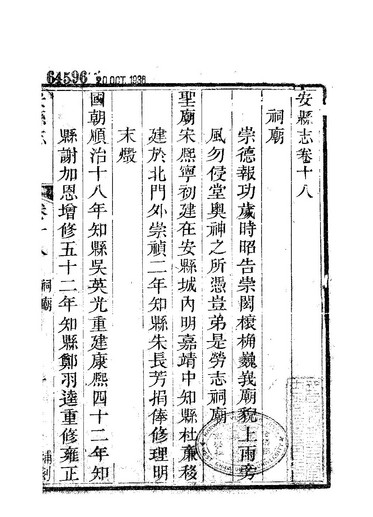 64596
20 OCT. 1936
安縣志卷十八
祠廟
崇德報功歲時昭告崇閎榱桷巍峩廟貌上雨旁
風勿侵堂奧神之所憑豈弟是勞志祠廟
聖廟宋熙寧初建在安縣城內明嘉靖中知縣杜廉移
建於北門外崇禎二年知縣朱長芳捐俸修理明
末燬
國朝順治十八年知縣吳英光重建康熙四十二年知
縣謝加恩增修五十二年知縣鄭羽逵重修雍正
卷十八
祠廟
補刻